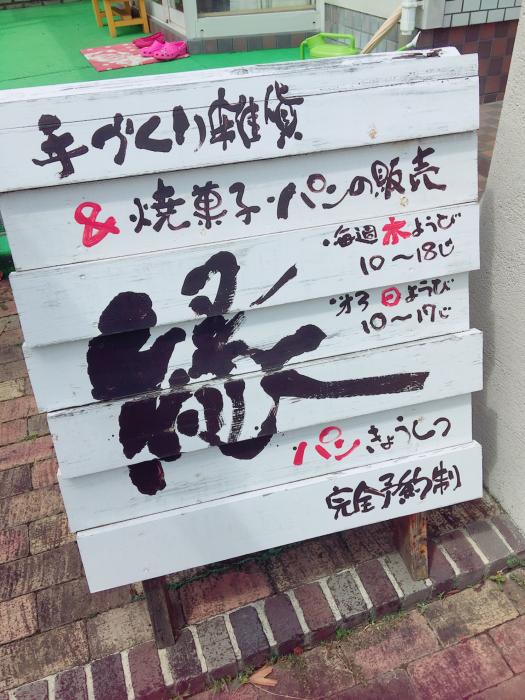 手づくり雑貨
&焼菓子・パンの販売
・毎週木ようび
10〜18じ
・才3日ようび
10〜17じ
縁
・パンきょうしつ
完全予約制